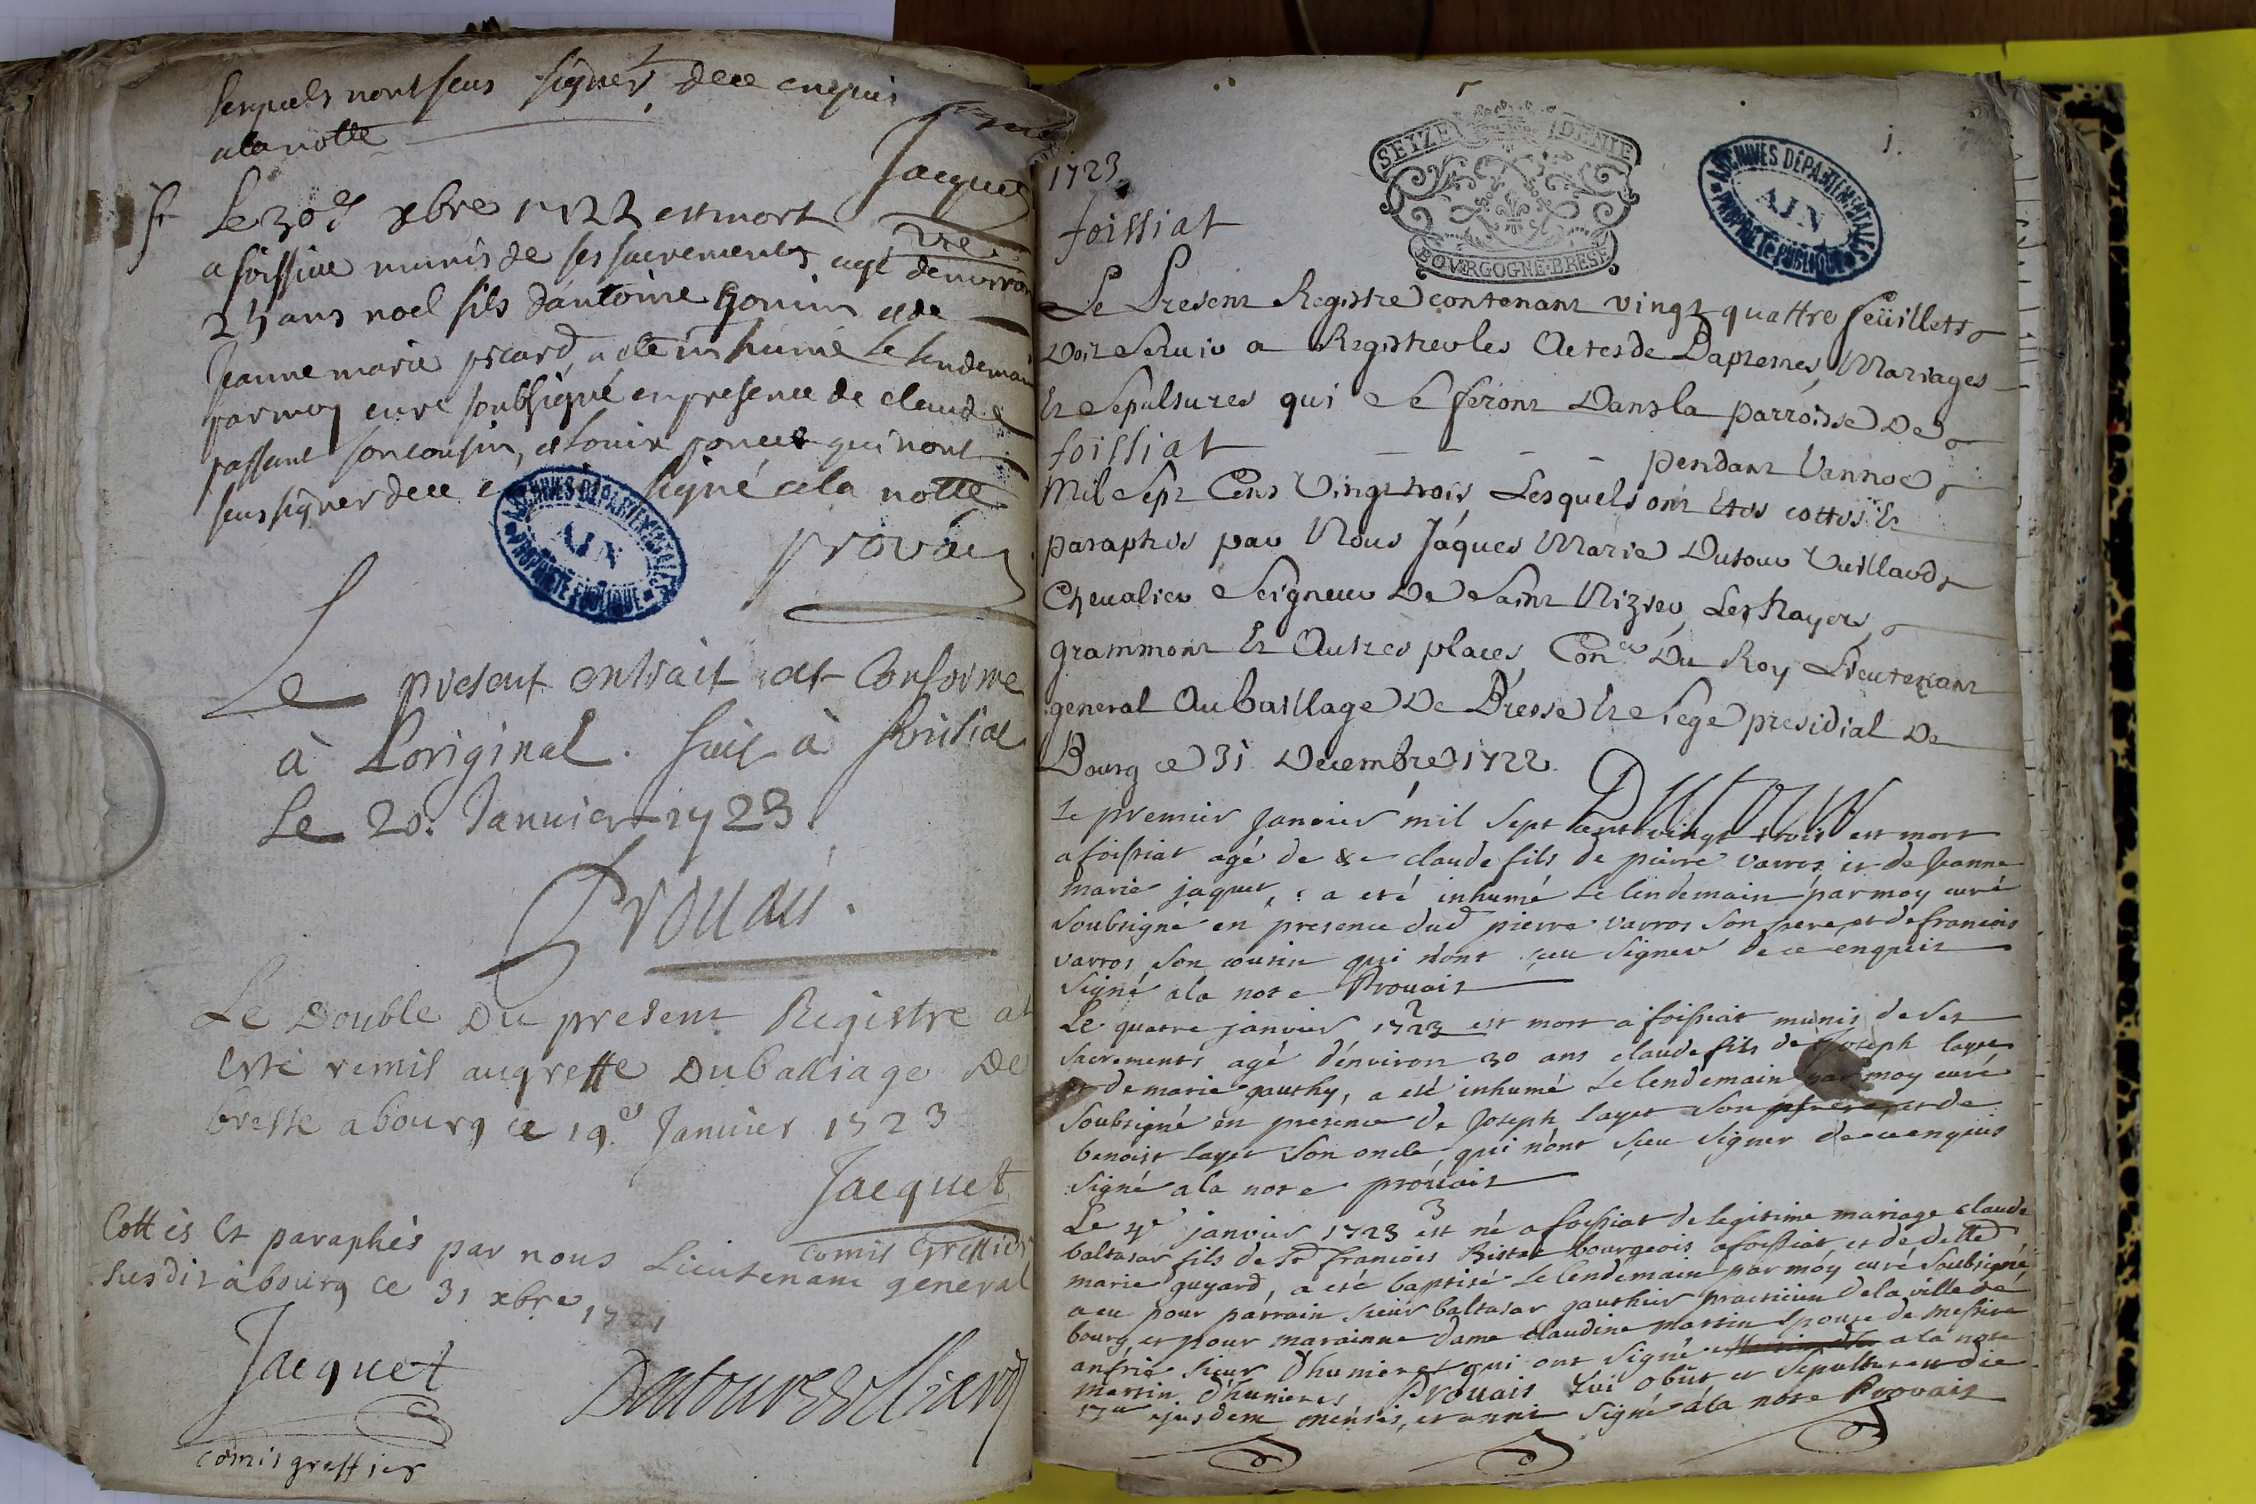 lesquels n'ont seus signer, dece enquis
a la notte
Jacquet
f
Le 30e xbre 1722 est mort
a foissiat munis de ses sacrements agé denviron
25 ans noel fils dantoine gonin et de
Jeanne marie picard, a eté inhumé le lendemain
par moy curé soubsigné en presence de claude
passant son cousin, et louis poncet qui nont
seus signer dece e signé a la notte
provais
Le present extrait est Conforme
à Loriginal. fait à foissiat
Le 20. Janvier 1723.
Prouais.
Le Double Du present Registre at
Esté remis au greffe Du balliage De
bresse a bourg ce 19e Janvier 1723
Jacquet
comis Greffier
Cottés Et paraphés par nous Lieutenant general
susdit à bourg ce 31 xbre 1721
Jacquet
comis greffier
Dutour Vuilliard
SEIZE DENIE
BOVRGOGNE·BRESE
ARCHIVES DÉPARTEMENTALES
AIN
PROPRIÉTÉ PUBLIQUE
ARCHIVES DÉPARTEMENTALES
AIN
PROPRIÉTÉ PUBLIQUE
1.
1723
foissiat
Le Present Registre contenant vingt quattre feüillets
Doit Servir a Registrer les Actes de Baptemes, Mariages
Et Sepultures qui Se feront Dans la parroisse De
foissiat - - - - pendant L'année
Mil Sept Cens Vingt trois, Lesquels ont Etés cottés Et
paraphés par Nous Jáques Marie Dutour Vuillard
Chevalier Seigneur De Saint Nizier, Les Rayers,
grammont Et Autres places, Coner Du Roy Lieutenant
general Au baillage De Bresse Et Siege presidial De
Bourg ce 31 Decembre 1722
Dutour
Le premier janvier mil sept cent vingt trois est mort
a foissiat agé de claude fils de pierre varros et de Jeanne
marie jaquet, a eté inhumé le lendemain par moy curé
soubsigné en presence dud pierre varros son pere, et de francois
varros son cousin qui n'ont sçeu signer de ce enquis
signé a la note Prouais
Le quatre janvier 1723 est mort a foissiat munis de ses
sacrements agé d'environ 30 ans claude fils de joseph layet
et de marie gauthy, a eté inhumé le lendemain par moy curé
soubsigné en presence de joseph layet son frere, et de
benoist layet son oncle, qui n'ont sçeu signer de ce enquis
signé a la note prouais
Le 4e janvier 1723 est né a foissiat de legitime mariage claude
baltasar fils de Sr francois Ristat bourgeois a foissiat et de delle
marie guyard, a eté baptisé le lendemain par moy curé soubsigné
a eu pour parrain sieur baltasar gauthier practicien de la ville de
bourg et pour marainne dame claudine martin Epouse de messire
andrié sieur D'humieres qui ont signé a la note
martin D'humieres Prouais Lui obiit et sepultus est die
17a ejusdem mensis, et anni signé a la note Prouais